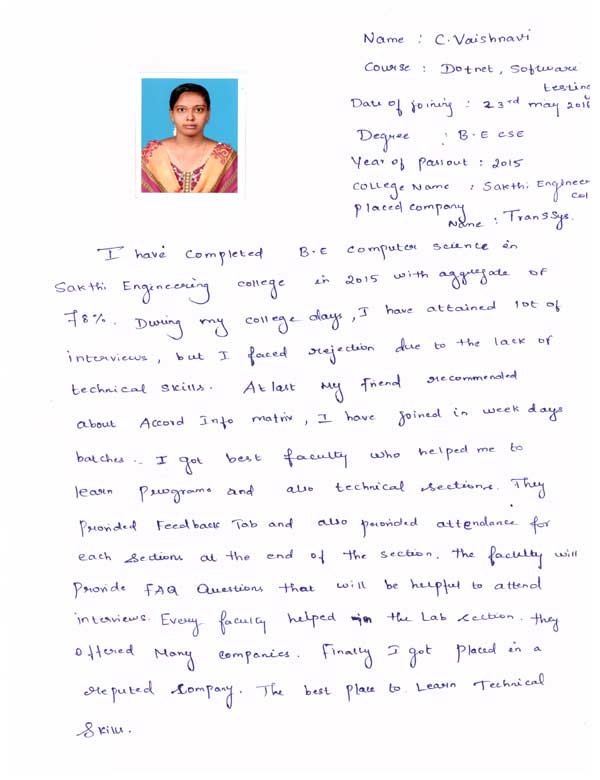 Name : C. Vaishnavi
Course : Dotnet, Software
testing
Date of joining : 23rd may 2016
Degree : B.E CSE
Year of Passout : 2015
College Name : Sakthi Engineer
Col
Placed company
Name : TransSys.
I have completed B.E computer science in
Sakthi Engineering college in 2015 with aggregate of
78%. During my college days, I have attained lot of
interviews, but I faced rejection due to the lack of
technical skills. At last My friend recommended
about Accord Info matrix, I have joined in week days
batches. I got best faculty who helped me to
learn Programs and also technical sections. They
Provided Feedback Tab and also provided attendance for
each sections at the end of the section. The faculty will
Provide FAQ Questions that will be helpful to attend
interviews. Every faculty helped in the Lab section. they
offered Many companies. Finally I got Placed in a
reputed Company. The best place to Learn Technical
Skills.